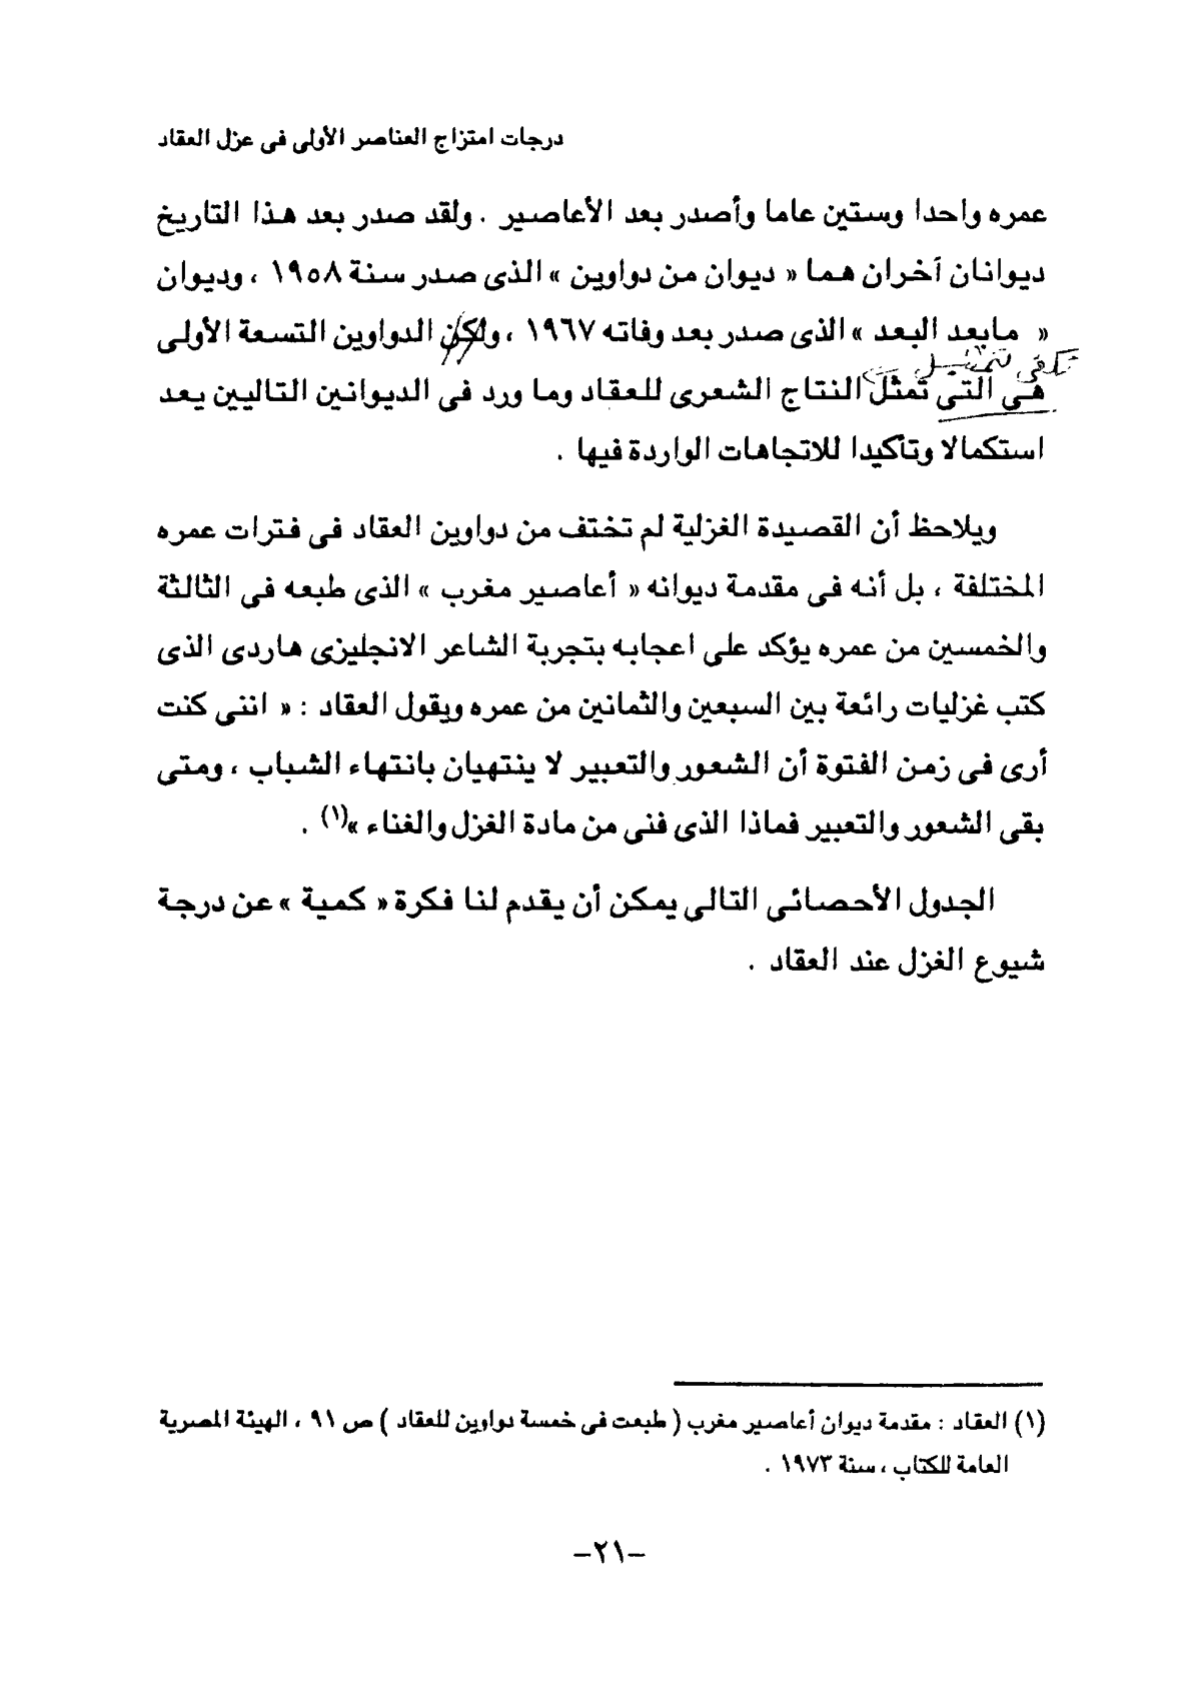 درجات امتزاج العناصر الأولى فى عزل العقاد
عمره واحدا وستين عاما وأصدر بعد الأعاصير . ولقد صدر بعد هذا التاريخ
ديوانان أخران هما « ديوان من دواوين » الذى صدر سنة ١٩٥٨ ، وديوان
« مابعد البعد » الذى صدر بعد وفاته ١٩٦٧ ، ولكن الدواوين التسعة الأولى
تكفى لتمثيل
هى التى تمثل النتاج الشعرى للعقاد وما ورد فى الديوانين التاليين يعد
استكمالا وتأكيدا للاتجاهات الواردة فيها .
ويلاحظ أن القصيدة الغزلية لم تختف من دواوين العقاد فى فترات عمره
المختلفة ، بل أنه فى مقدمة ديوانه « أعاصير مغرب » الذى طبعه فى الثالثة
والخمسين من عمره يؤكد على اعجابه بتجربة الشاعر الانجليزى هاردى الذى
كتب غزليات رائعة بين السبعين والثمانين من عمره ويقول العقاد : « اننى كنت
أرى فى زمن الفتوة أن الشعور والتعبير لا ينتهيان بانتهاء الشباب ، ومتى
بقى الشعور والتعبير فماذا الذى فنى من مادة الغزل والغناء »(١) .
الجدول الأحصائى التالى يمكن أن يقدم لنا فكرة « كمية » عن درجة
شيوع الغزل عند العقاد .
(١) العقاد : مقدمة ديوان أعاصير مغرب ( طبعت فى خمسة دواوين للعقاد ) ص ٩١ ، الهيئة المصرية
العامة للكتاب ، سنة ١٩٧٣ .
–٢١–